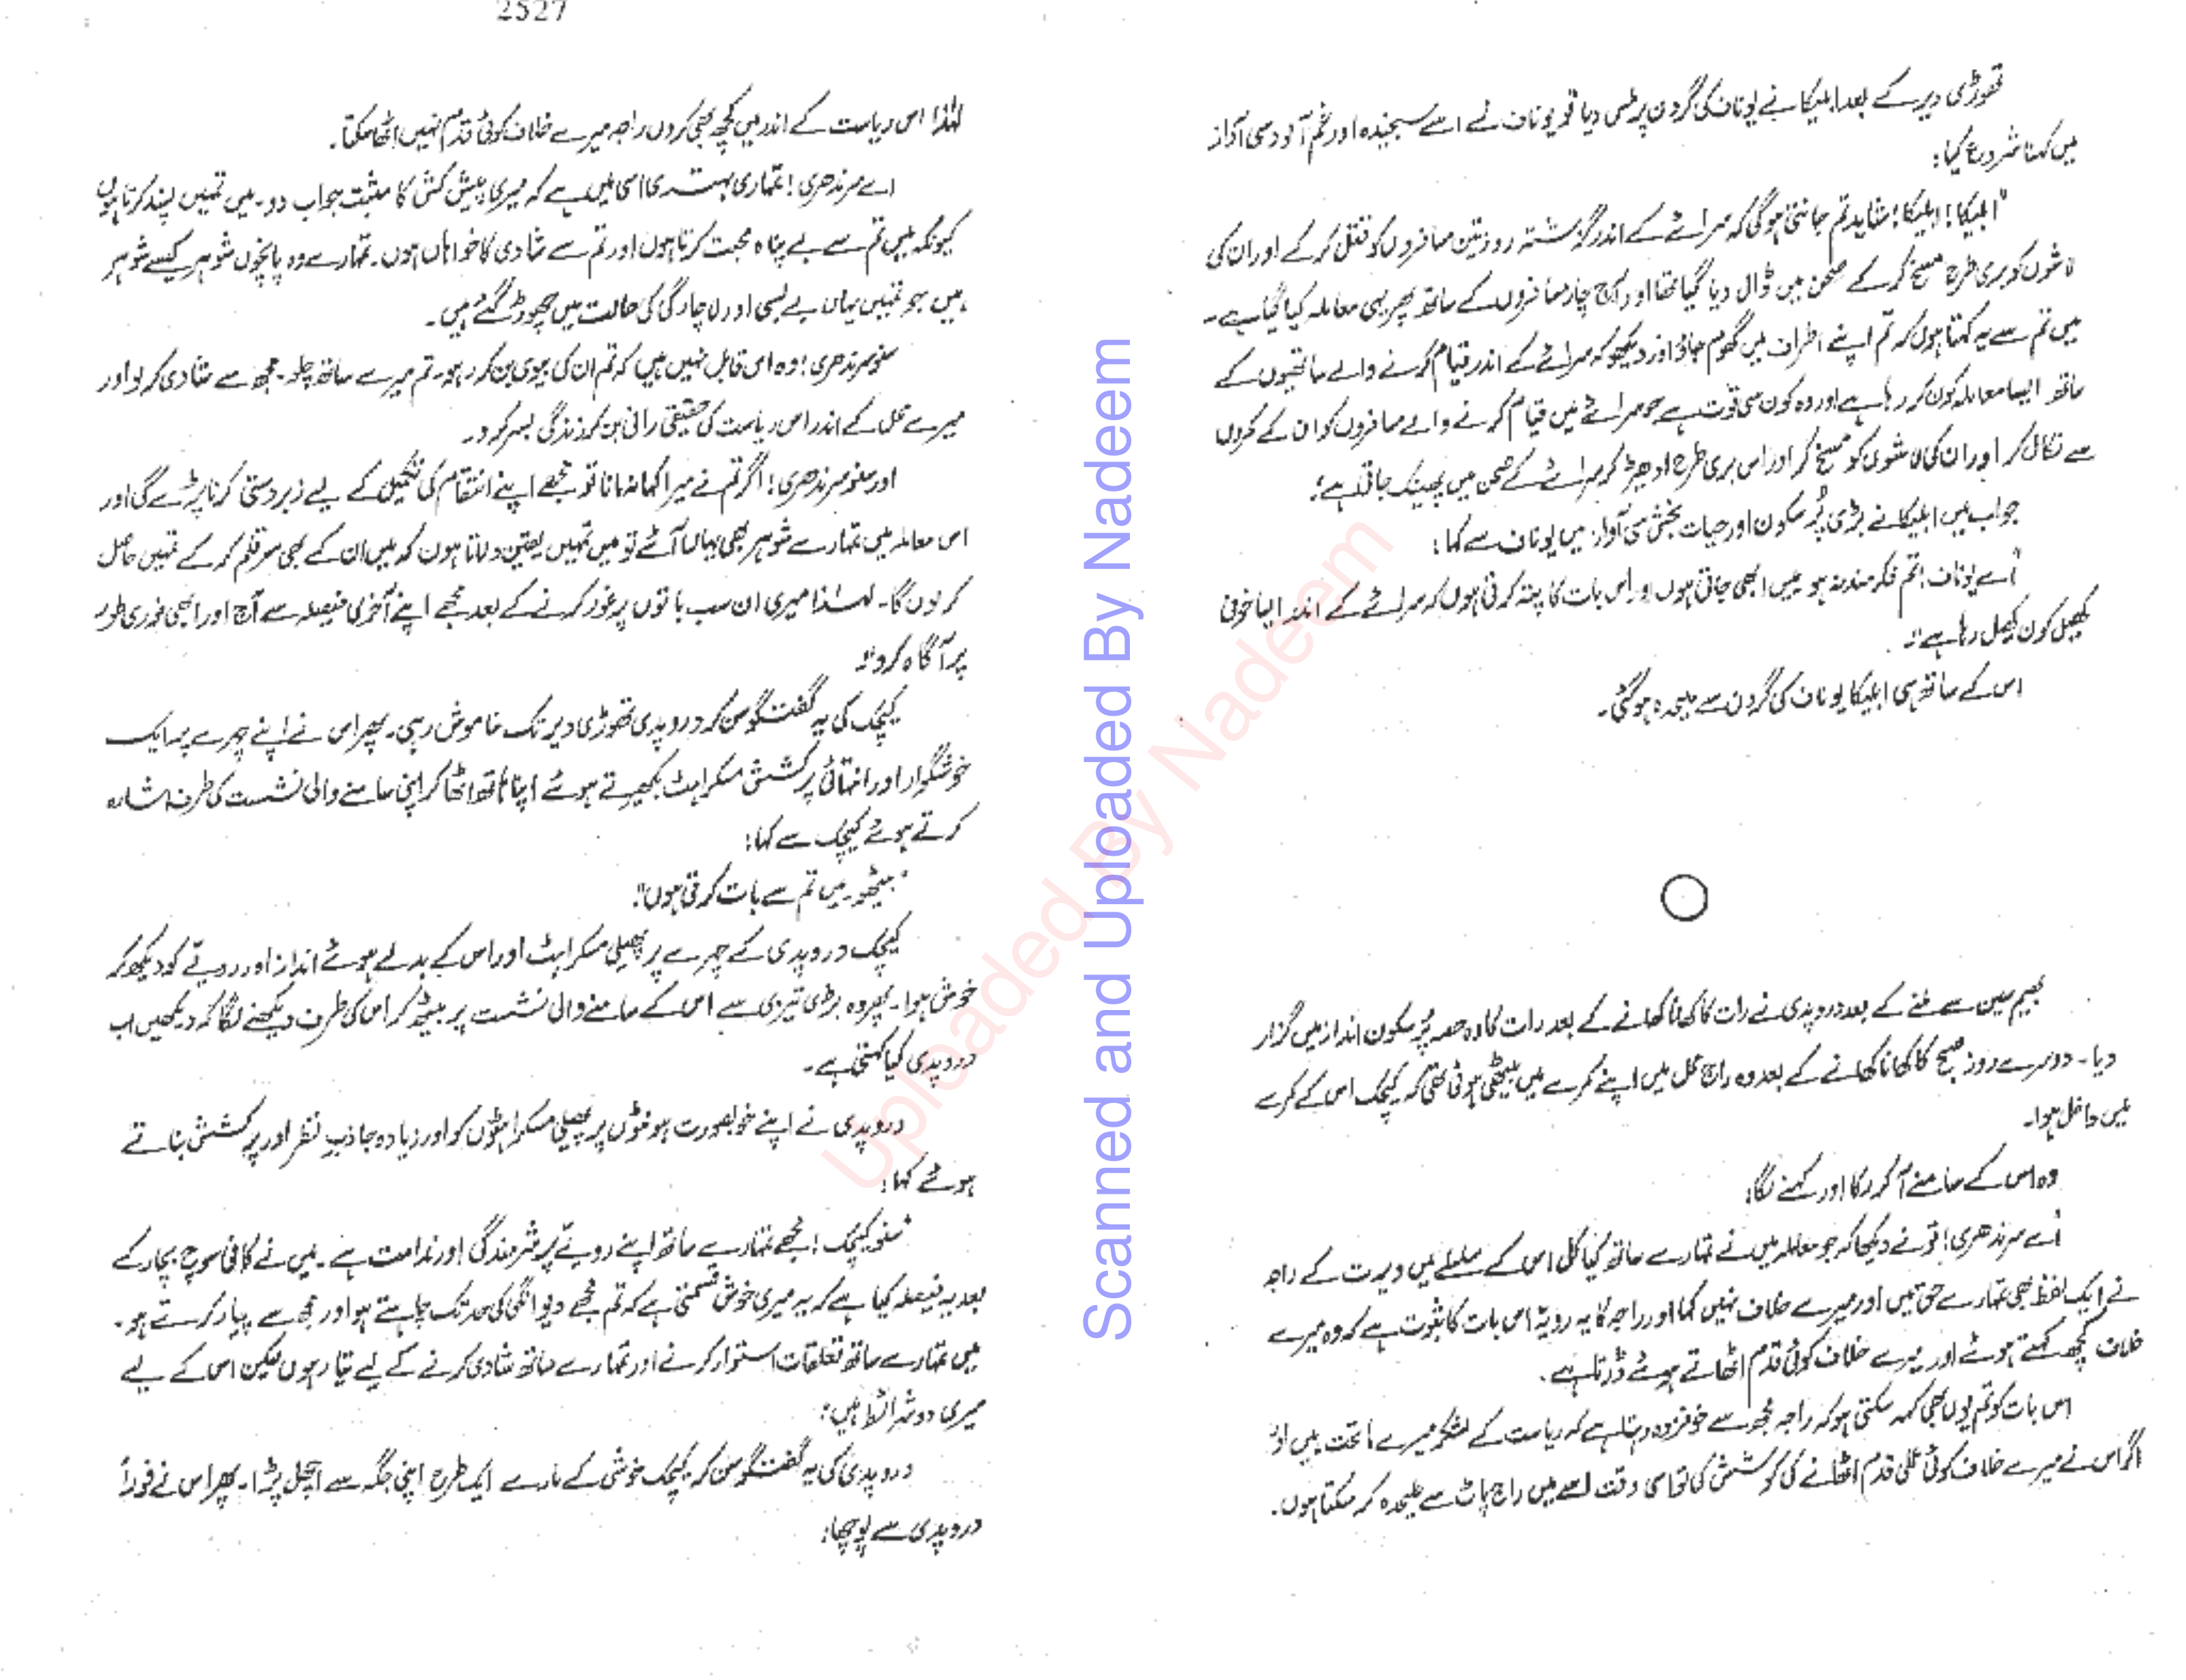 2527
تھوڑی دیر کے بعد ابلیکا نے یوناف کی گردن پر لمس دیا تو یوناف نے اسے سنجیدہ اور غم آلود سی آواز
میں کہنا شروع کیا:
"ابلیکا! ابلیکا! شاید تم جانتی ہوگی کہ سرائے کے اندر گزشتہ روز تین مسافروں کو قتل کر کے اور ان کی
لاشوں کو بری طرح مسخ کر کے صحن میں ڈال دیا گیا تھا اور آج چار مسافروں کے ساتھ پھر یہی معاملہ کیا گیا ہے۔
میں تم سے یہ کہتا ہوں کہ تم اپنے اطراف میں گھوم جاؤ اور دیکھو کہ سرائے کے اندر قیام کرنے والے ساتھیوں کے
ساتھ ایسا معاملہ کون کر رہا ہے اور وہ کون سی قوت ہے جو سرائے میں قیام کرنے والے مسافروں کو ان کے کمروں
سے نکال کر اور ان کی لاشوں کو مسخ کر اور اس بری طرح ادھیڑ کر سرائے کے صحن میں پھینک جاتی ہے؛
جواب میں ابلیکا نے بڑی پُرسکون اور حیات بخش سی آواز میں یوناف سے کہا:
"اے یوناف! تم فکرمند نہ ہو میں ابھی جاتی ہوں اور اس بات کا پتہ کرتی ہوں کہ سرائے کے اندر ایسا خونی
کھیل کون کھیل رہا ہے"۔
اس کے ساتھ ہی ابلیکا یوناف کی گردن سے علیحدہ ہوگئی۔
بھیم سین سے ملنے کے بعد دروپدی نے رات کا کھانا کھانے کے بعد رات کا وہ حصہ پُرسکون انداز میں گزار
دیا۔ دوسرے روز صبح کا کھانا کھانے کے بعد وہ راج محل میں اپنے کمرے میں بیٹھی ہوئی تھی کہ کیچک اس کے کمرے
میں داخل ہوا۔
وہ اس کے سامنے آ کر رکا اور کہنے لگا:
"اے سرندھری! تو نے دیکھا کہ جو معاملہ میں نے تمہارے ساتھ کیا کل اس کے سلسلے میں ویرت کے راجہ
نے ایک لفظ بھی تمہارے حق میں اور میرے خلاف نہیں کہا اور راجہ کا یہ رویہ اس بات کا ثبوت ہے کہ وہ میرے
خلاف کچھ کہتے ہوئے اور میرے خلاف کوئی قدم اٹھاتے ہوئے ڈرتا ہے۔
اس بات کو تم یوں بھی کہہ سکتی ہو کہ راجہ مجھ سے خوفزدہ رہتا ہے کہ ریاست کے لشکر میرے ماتحت ہیں اور
اگر اس نے میرے خلاف کوئی عملی قدم اٹھانے کی کوشش کی تو اسی وقت اسے میں راج پاٹ سے علیحدہ کر سکتا ہوں۔
لہٰذا اس ریاست کے اندر میں کچھ بھی کروں راجہ میرے خلاف کوئی قدم نہیں اٹھا سکتا۔
اے سرندھری! تمہاری بہتری اسی میں ہے کہ میری پیش کش کا مثبت جواب دو۔ میں تمہیں پسند کرتا ہوں
کیونکہ میں تم سے بے پناہ محبت کرتا ہوں اور تم سے شادی کا خواہاں ہوں۔ تمہارے وہ پانچوں شوہر کیسے شوہر
ہیں جو تمہیں یہاں بے بسی اور لاچارگی کی حالت میں چھوڑ گئے ہیں۔
سنو سرندھری! وہ اس قابل نہیں ہیں کہ تم ان کی بیوی بن کر رہو۔ تم میرے ساتھ چلو۔ مجھ سے شادی کر لو اور
میرے محل کے اندر اس ریاست کی حقیقی رانی بن کر زندگی بسر کرو۔
اور سنو سرندھری! اگر تم نے میرا کہا نہ مانا تو مجھے اپنے انتقام کی تکمیل کے لیے زبردستی کرنا پڑے گی اور
اس معاملہ میں تمہارے شوہر بھی یہاں آئے تو میں تمہیں یقین دلاتا ہوں کہ میں ان کے بھی سر قلم کر کے تمہیں حاصل
کر لوں گا۔ لہٰذا میری ان سب باتوں پر غور کرنے کے بعد مجھے اپنے آخری فیصلہ سے آج اور ابھی فوری طور
پر آگاہ کرو"۔
کیچک کی یہ گفتگو سن کر دروپدی تھوڑی دیر تک خاموش رہی۔ پھر اس نے اپنے چہرے پر ایک
خوشگوار اور انتہائی پرکشش مسکراہٹ بکھیرتے ہوئے اپنا ہاتھ اٹھا کر اپنی سامنے والی نشست کی طرف اشارہ
کرتے ہوئے کیچک سے کہا:
"بیٹھو۔ میں تم سے بات کرتی ہوں"۔
کیچک دروپدی کے چہرے پر پھیلی مسکراہٹ اور اس کے بدلے ہوئے انداز اور رویے کو دیکھ کر
خوش ہوا۔ پھر وہ بڑی تیزی سے اس کے سامنے والی نشست پر بیٹھ کر اس کی طرف دیکھنے لگا کہ دیکھیں اب
دروپدی کیا کہتی ہے۔
دروپدی نے اپنے خوبصورت ہونٹوں پر پھیلی مسکراہٹوں کو اور زیادہ جاذبِ نظر اور پرکشش بناتے
ہوئے کہا:
"سنو کیچک! مجھے تمہارے ساتھ اپنے رویے پر شرمندگی اور ندامت ہے۔ میں نے کافی سوچ بچار کے
بعد یہ فیصلہ کیا ہے کہ یہ میری خوش قسمتی ہے کہ تم مجھے دیوانگی کی حد تک چاہتے ہو اور مجھ سے پیار کرتے ہو۔
میں تمہارے ساتھ تعلقات استوار کرنے اور تمہارے ساتھ شادی کرنے کے لیے تیار ہوں لیکن اس کے لیے
میری دو شرائط ہیں؛
دروپدی کی یہ گفتگو سن کر کیچک خوشی کے مارے ایک طرح اپنی جگہ سے اچھل پڑا۔ پھر اس نے فوراً
دروپدی سے پوچھا:
Scanned and Uploaded By Nadeem
Uploaded By Nadeem